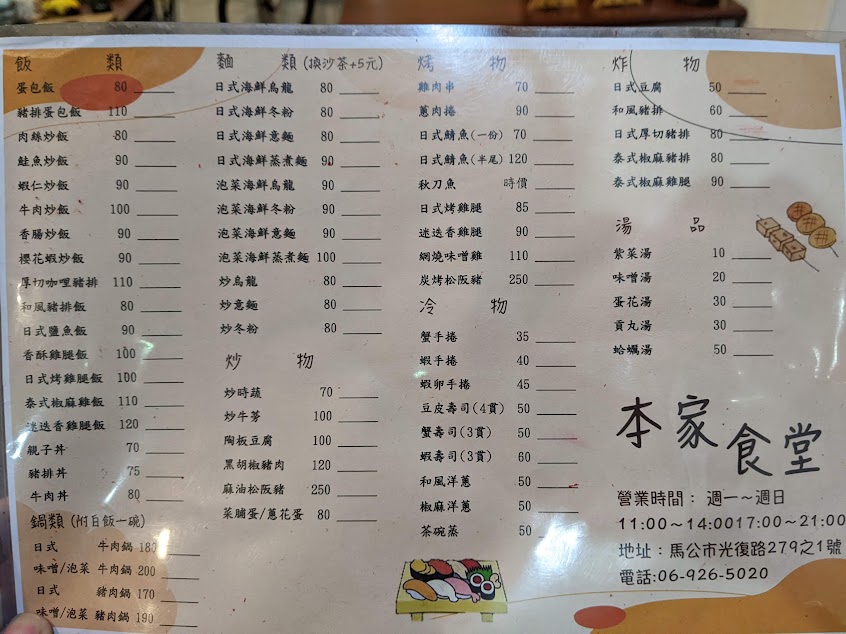 飯 類
蛋包飯 80
豬排蛋包飯 110
肉絲炒飯 80
鮭魚炒飯 90
蝦仁炒飯 90
牛肉炒飯 100
香腸炒飯 90
櫻花蝦炒飯 90
厚切咖哩豬排 110
和風豬排飯 80
日式鹽魚飯 90
香酥雞腿飯 100
日式烤雞腿飯 100
泰式椒麻雞飯 110
迷迭香雞腿飯 120
親子丼 70
豬排丼 75
牛肉丼 80
鍋類(附白飯一碗)
日式 牛肉鍋 180
味噌/泡菜 牛肉鍋 200
日式 豬肉鍋 170
味噌/泡菜 豬肉鍋 190
麵 類(換沙茶+5元)
日式海鮮烏龍 80
日式海鮮冬粉 80
日式海鮮意麵 80
日式海鮮蒸煮麵 90
泡菜海鮮烏龍 90
泡菜海鮮冬粉 90
泡菜海鮮意麵 90
泡菜海鮮蒸煮麵 100
炒烏龍 80
炒意麵 80
炒冬粉 80
炒 物
炒時蔬 70
炒牛蒡 100
陶板豆腐 100
黑胡椒豬肉 120
麻油松阪豬 250
菜脯蛋/蔥花蛋 80
烤 物
雞肉串 70
蔥肉捲 90
日式鯖魚(一份) 70
日式鯖魚(半尾) 120
秋刀魚 時價
日式烤雞腿 85
迷迭香雞腿 90
網燒味噌雞 110
炭烤松阪豬 250
冷 物
蟹手捲 35
蝦手捲 40
蝦卵手捲 45
豆皮壽司(4貫) 50
蟹壽司(3貫) 50
蝦壽司(3貫) 60
和風洋蔥 50
椒麻洋蔥 50
茶碗蒸 50
炸 物
日式豆腐 50
和風豬排 60
日式厚切豬排 80
泰式椒麻豬排 80
泰式椒麻雞腿 90
湯 品
紫菜湯 10
味噌湯 20
蛋花湯 30
貢丸湯 30
蛤蠣湯 50
本家食堂
營業時間： 週一～週日
11:00～14:0017:00～21:00
地址：馬公市光復路279之1號
電話:06-926-5020